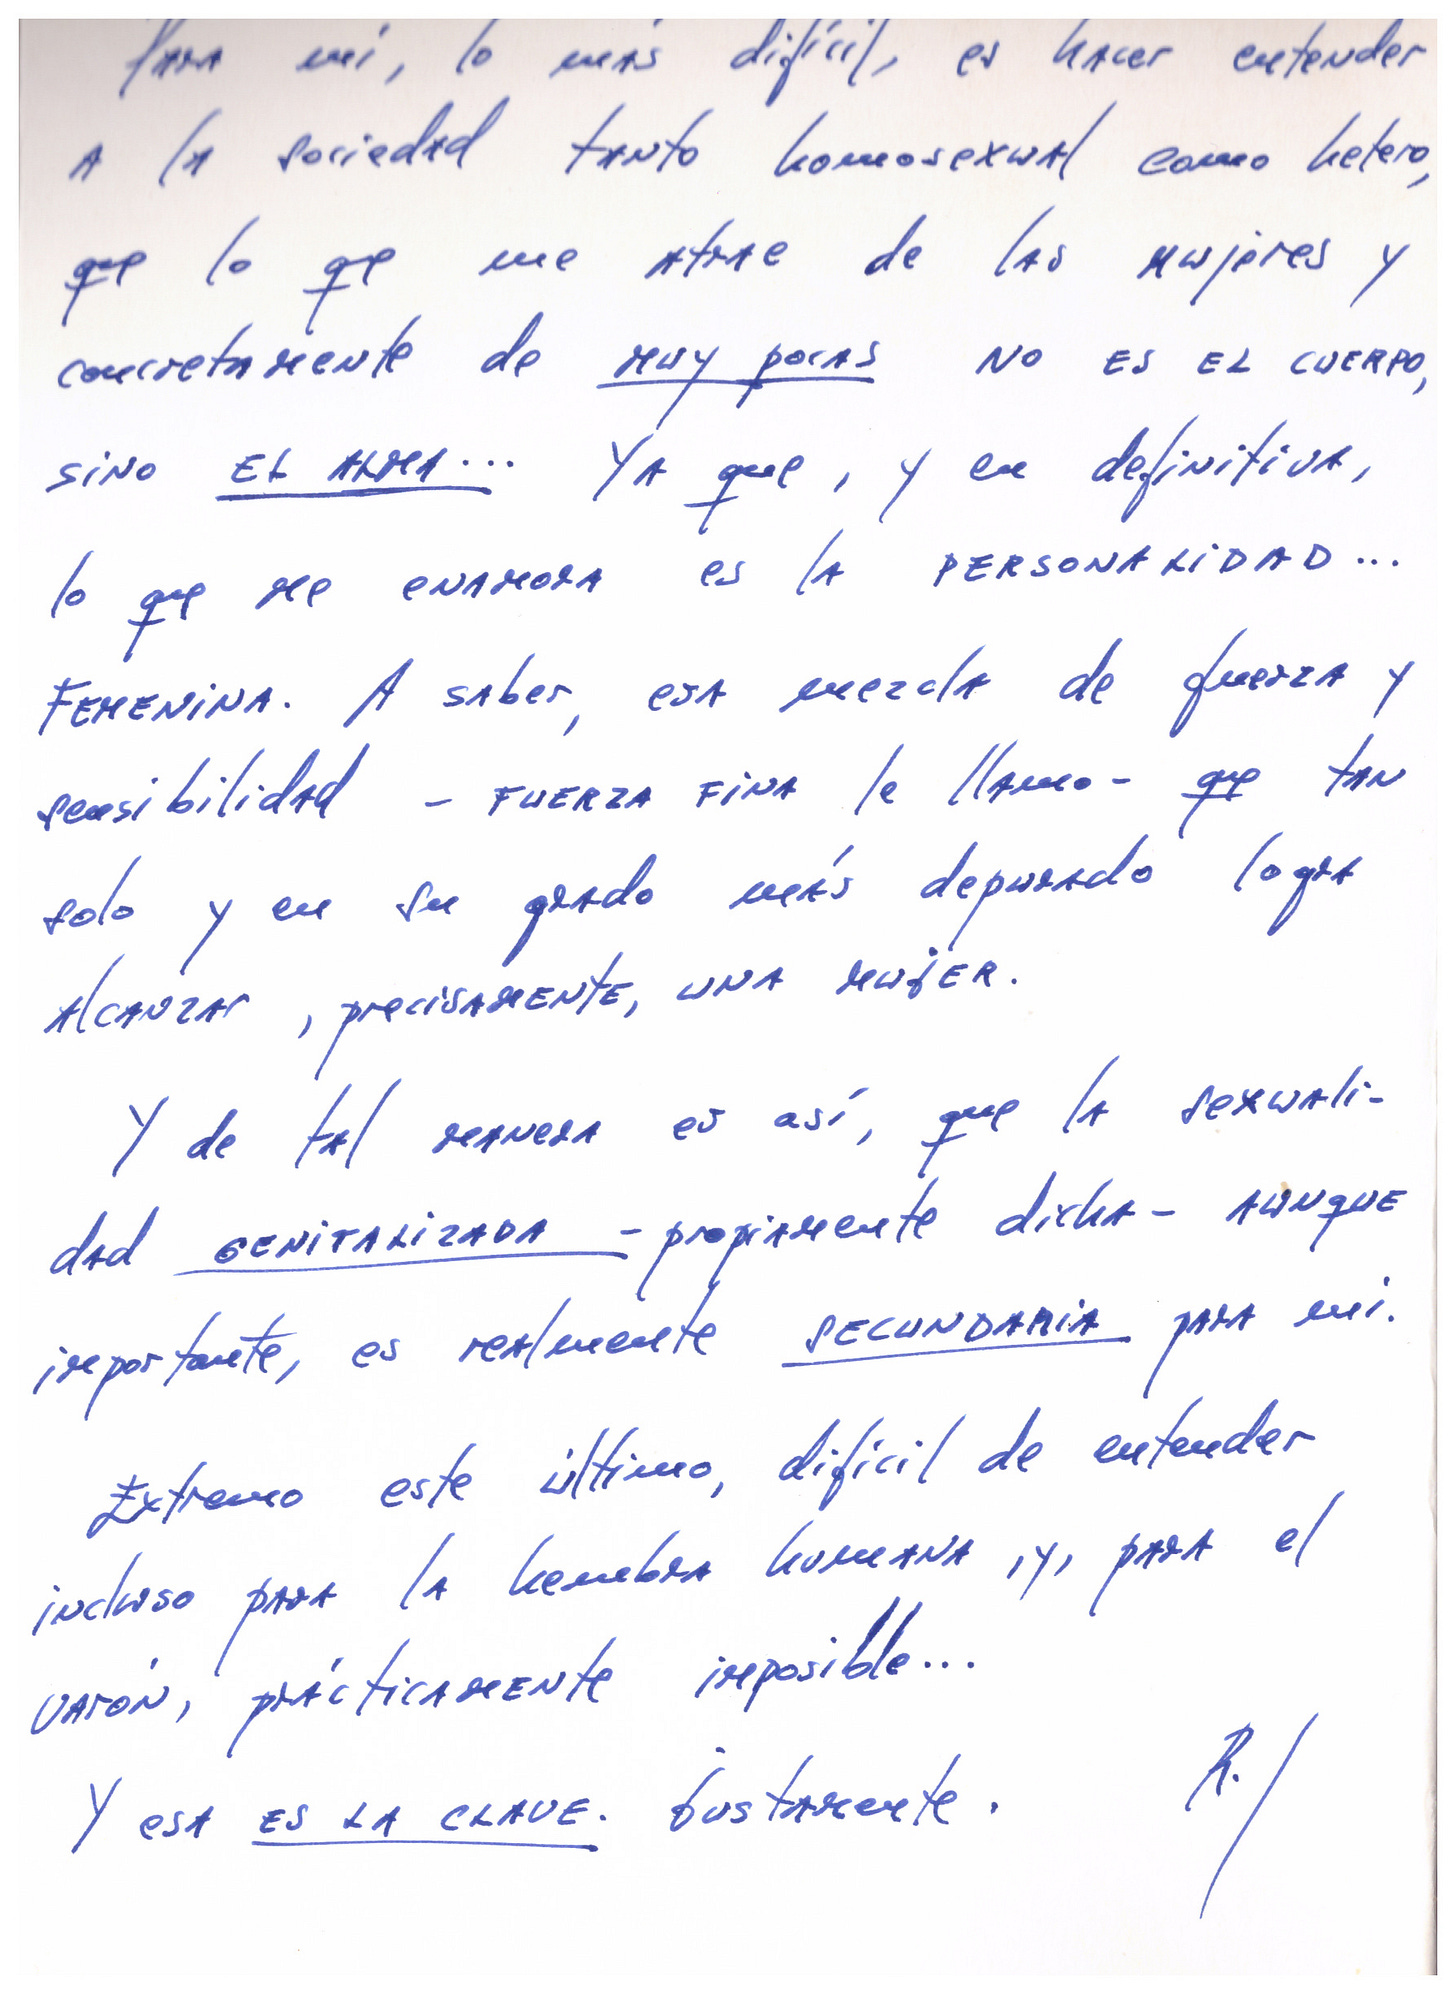 Para mí, lo más difícil, es hacer entender
A la sociedad tanto homosexual como hetero,
que lo que me atrae de las mujeres y
concretamente de muy pocas NO ES EL CUERPO,
sino EL ALMA... Ya que, y en definitiva,
lo que me enamora es la PERSONALIDAD...
FEMENINA. A saber, esa mezcla de fuerza y
sensibilidad - FUERZA FINA le llamo - que tan
solo y en su grado más depurado logra
alcanzar, precisamente, una mujer.
Y de tal manera es así, que la sexuali-
dad GENITALIZADA - propiamente dicha - AUNQUE
importante, es realmente SECUNDARIA para mi.
Extremo este último, difícil de entender
incluso para la hembra humana ,y, para el
varón, prácticamente imposible...
Y esa ES LA CLAVE. Justamente.
R.